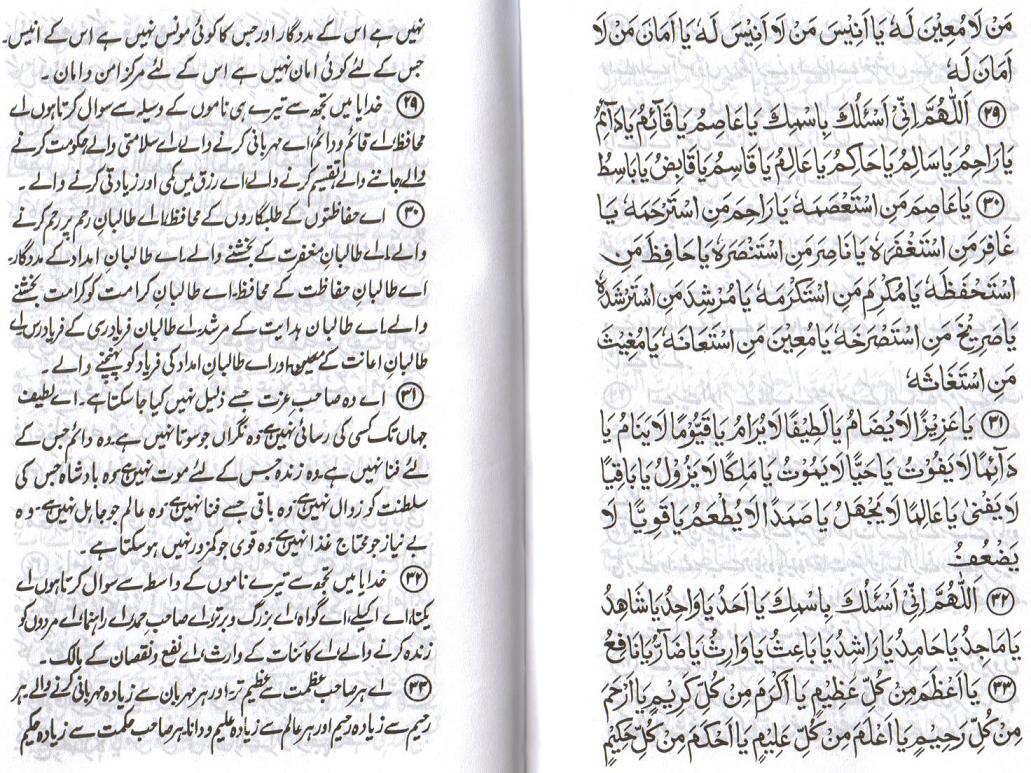 مَنْ لَا مُعِيْنَ لَهٗ يَا اَنِيْسَ مَنْ لَا اَنِيْسَ لَهٗ يَا اَمَانَ مَنْ لَا
اَمَانَ لَهٗ
۲۹ اَللّٰهُمَّ اِنِّیْ اَسْئَلُكَ بِاسْمِكَ يَا عَاصِمُ يَا قَآئِمُ يَا دَآئِمُ
يَا رَاحِمُ يَا سَالِمُ يَا حَاكِمُ يَا عَالِمُ يَا قَاسِمُ يَا قَابِضُ يَا بَاسِطُ
۳۰ يَا عَاصِمَ مَنِ اسْتَعْصَمَهٗ يَا رَاحِمَ مَنِ اسْتَرْحَمَهٗ يَا
غَافِرَ مَنِ اسْتَغْفَرَهٗ يَا نَاصِرَ مَنِ اسْتَنْصَرَهٗ يَا حَافِظَ مَنِ
اسْتَحْفَظَهٗ يَا مُكْرِمَ مَنِ اسْتَكْرَمَهٗ يَا مُرْشِدَ مَنِ اسْتَرْشَدَهٗ
يَا صَرِيْخَ مَنِ اسْتَصْرَخَهٗ يَا مُعِيْنَ مَنِ اسْتَعَانَهٗ يَا مُغِيْثَ
مَنِ اسْتَغَاثَهٗ
۳۱ يَا عَزِيْزًا لَا يُضَامُ يَا لَطِيْفًا لَا يُرَامُ يَا قَيُّوْمًا لَا يَنَامُ يَا
دَآئِمًا لَا يَفُوْتُ يَا حَيًّا لَا يَمُوْتُ يَا مَلِكًا لَا يَزُوْلُ يَا بَاقِيًا
لَا يَفْنٰى يَا عَالِمًا لَا يَجْهَلُ يَا صَمَدًا لَا يُطْعَمُ يَا قَوِيًّا لَا
يَضْعُفُ
۳۲ اَللّٰهُمَّ اِنِّیْ اَسْئَلُكَ بِاسْمِكَ يَا اَحَدُ يَا وَاحِدُ يَا شَاهِدُ
يَا مَاجِدُ يَا حَامِدُ يَا رَاشِدُ يَا بَاعِثُ يَا وَارِثُ يَا ضَآرُّ يَا نَافِعُ
۳۳ يَا اَعْظَمَ مِنْ كُلِّ عَظِيْمٍ يَا اَكْرَمَ مِنْ كُلِّ كَرِيْمٍ يَا اَرْحَمَ
مِنْ كُلِّ رَحِيْمٍ يَا اَعْلَمَ مِنْ كُلِّ عَلِيْمٍ يَا اَحْكَمَ مِنْ كُلِّ حَكِيْمٍ
نہیں ہے اس کے مددگار اور جس کا کوئی مونس نہیں ہے اس کے انیس۔
جس کے لئے کوئی امان نہیں ہے اس کے لئے مرکز امن و امان ۔
۲۹ خدایا میں تجھ سے تیرے ہی ناموں کے وسیلہ سے سوال کرتا ہوں اے
محافظ اے قائم و دائم، اے مہربانی کرنے والے اے سلامتی والے حکومت کرنے
والے جاننے والے تقسیم کرنے والے اے رزق میں کمی اور زیادتی کرنے والے ۔
۳۰ اے حفاظتوں کے طلبگاروں کے محافظ، اے طالبان رحم پر رحم کرنے
والے اے طالبان مغفرت کے بخشنے والے، اے طالبانِ امداد کے مددگار۔
اے طالبانِ حفاظت کے محافظ، اے طالبانِ کرامت کو کرامت بخشنے
والے اے طالبان ہدایت کے مرشد، اے طالبان فریادرسی کے فریادرس اے
طالبانِ اعانت کے معین اور اے طالبانِ امداد کی فریاد کو پہنچنے والے ۔
۳۱ اے وہ صاحب عزت جسے ذلیل نہیں کیا جا سکتا ہے۔ اے لطیف
جہاں تک کسی کی رسائی نہیں ہے وہ نگراں جو سوتا نہیں ہے، وہ دائم جس کے
لئے فنا نہیں ہے، وہ زندہ جس کے لئے موت نہیں ہے، وہ بادشاہ جس کی
سلطنت کو زوال نہیں ہے وہ باقی جسے فنا نہیں ہے وہ عالم جو جاہل نہیں ہے۔ وہ
بے نیاز جو محتاج غذا نہیں ہے وہ قوی جو کمزور نہیں ہو سکتا ہے ۔
۳۲ خدایا میں تجھ سے تیرے ناموں کے واسطہ سے سوال کرتا ہوں اے
یکتا، اے اکیلے، اے گواہ، اے بزرگ و برتر، اے صاحب حمد، اے راہنما، اے مردوں کو
زندہ کرنے والے، اے کائنات کے وارث، اے نفع و نقصان کے مالک ۔
۳۳ اے ہر صاحب عظمت سے عظیم تر، اور ہر مہربان سے زیادہ مہربانی کرنے والے، ہر
رحیم سے زیادہ رحیم اور ہر عالم سے زیادہ علیم و دانا، ہر صاحب حکمت سے زیادہ حکیم